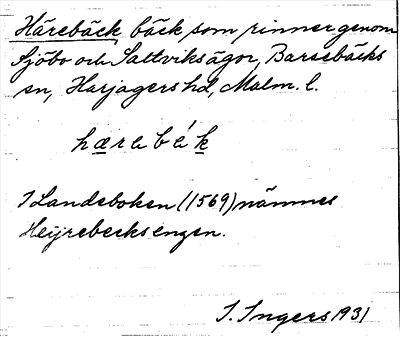 Härebäck, bäck, som rinner genom
Sjöbo och Sattviks ägor, Barsebäcks
sn, Harjagers hd, Malm. l.
hærebék
I Landeboken (1569) nämnes
Heÿrebecks engen.
I. Ingers 1931